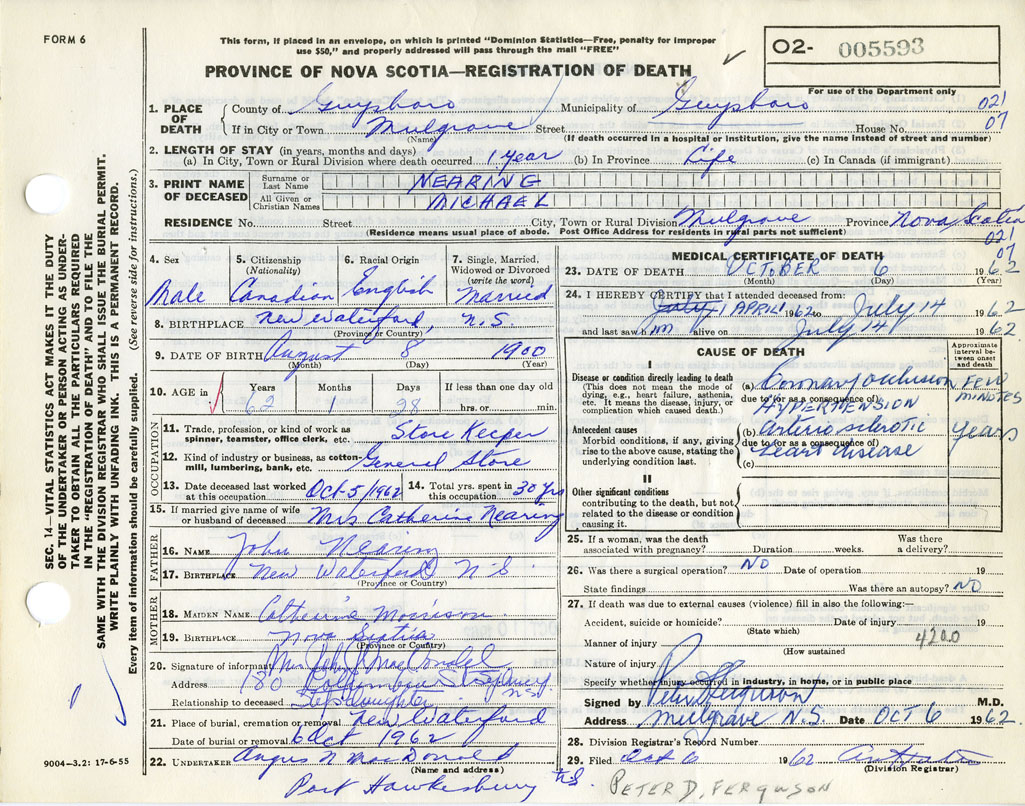 FORM 6
This form, if placed in an envelope, on which is printed "Dominion Statistics—Free, penalty for improper
use $50," and properly addressed will pass through the mail "FREE"
PROVINCE OF NOVA SCOTIA—REGISTRATION OF DEATH
02- 005593
For use of the Department only
021
07
1. PLACE OF DEATH County of Guysboro Municipality of Guysboro
If in City or Town Mulgrave Street House No.
(Name) (If death occurred in a hospital or institution, give the name instead of street and number)
2. LENGTH OF STAY (in years, months and days)
(a) In City, Town or Rural Division where death occurred 1 year (b) In Province Life (c) In Canada (if immigrant)
3. PRINT NAME OF DECEASED Surname or Last Name NEARING
All Given or Christian Names MICHAEL
RESIDENCE No. Street City, Town or Rural Division Mulgrave Province Nova Scotia
(Residence means usual place of abode. Post Office Address for residents in rural parts not sufficient)
021
07
4. Sex Male
5. Citizenship (Nationality) Canadian
6. Racial Origin English
7. Single, Married, Widowed or Divorced (write the word) Married
8. BIRTHPLACE New Waterford, N.S.
(Province or Country)
9. DATE OF BIRTH August 8 1900
(Month) (Day) (Year)
10. AGE in Years Months Days If less than one day old
62 1 28 hrs. or min.
OCCUPATION
11. Trade, profession, or kind of work as
spinner, teamster, office clerk, etc. Store Keeper
12. Kind of industry or business, as cotton-
mill, lumbering, bank, etc. General Store
13. Date deceased last worked at this occupation Oct-5/1962 14. Total yrs. spent in this occupation 30 yrs
15. If married give name of wife
or husband of deceased Mrs Catherine Nearing
FATHER
16. NAME John Nearing
17. BIRTHPLACE New Waterford N-S.
(Province or Country)
MOTHER
18. MAIDEN NAME Catherine Morrison
19. BIRTHPLACE Nova Scotia
(Province or Country)
20. Signature of informant Mrs John
Address 180 Sydney N-S
Relationship to deceased Stepdaughter
21. Place of burial, cremation or removal New Waterford
Date of burial or removal 6 Oct 1962
22. UNDERTAKER Angus N MacDonald
(Name and address)
Port Hawkesbury N.S.
MEDICAL CERTIFICATE OF DEATH
23. DATE OF DEATH OCTOBER 6 1962
(Month) (Day) (Year)
24. I HEREBY CERTIFY that I attended deceased from:
July 1 APRIL 1962 to July 14 1962
and last saw him alive on July 14 1962
CAUSE OF DEATH
Approximate interval between onset and death
I
Disease or condition directly leading to death
(This does not mean the mode of
dying, e.g., heart failure, asthenia,
etc. It means the disease, injury, or
complication which caused death.)
(a) Coronary occlusion FEW MINUTES
due to (or as a consequence of)
HYPERTENSION
Antecedent causes
Morbid conditions, if any, giving
rise to the above cause, stating the
underlying condition last.
(b) Arterio sclerotic years
due to (or as a consequence of)
Heart disease
(c)
II
Other significant conditions
contributing to the death, but not
related to the disease or condition
causing it.
25. If a woman, was the death
associated with pregnancy? Duration weeks. Was there a delivery?
26. Was there a surgical operation? NO Date of operation 19
State findings Was there an autopsy? NO
27. If death was due to external causes (violence) fill in also the following:—
Accident, suicide or homicide? Date of injury 19
(State which)
Manner of injury 4200
(How sustained)
Nature of injury
Specify whether injury occurred in industry, in home, or in public place
Signed by Peter D Ferguson M.D.
Address Mulgrave N.S. Date OCT 6 1962.
28. Division Registrar's Record Number
29. Filed Oct 6 1962
(Division Registrar)
PETER D. FERGUSON
SEC. 14—VITAL STATISTICS ACT MAKES IT THE DUTY
OF THE UNDERTAKER OR PERSON ACTING AS UNDER-
TAKER TO OBTAIN ALL THE PARTICULARS REQUIRED
IN THE "REGISTRATION OF DEATH" AND TO FILE THE
SAME WITH THE DIVISION REGISTRAR WHO SHALL ISSUE THE BURIAL PERMIT.
WRITE PLAINLY WITH UNFADING INK. THIS IS A PERMANENT RECORD.
Every item of information should be carefully supplied. (See reverse side for instructions.)
9004-3.2: 17-6-55